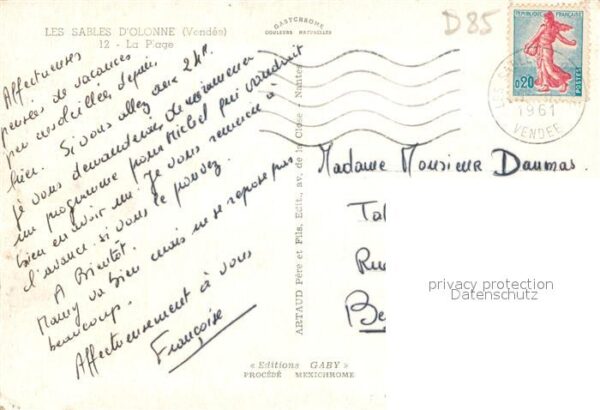 LES SABLES D'OLONNE (Vendée)
12 - La Plage
GASTCHROME
COULEURS NATURELLES
D85
RÉPUBLIQUE FRANÇAISE
0,20
POSTES
LES SA
1961
VENDEE
Affectueuses
pensées de vacances
peu ensoleillées depuis
hier. Si vous allez aux 24h.
je vous demanderais de m'emmener
un programme pour Michel qui voudrait
bien en avoir un. Je vous remercie à
l'avance si vous le pouvez.
A Bientôt.
Mamy va bien mais ne se repose pas
beaucoup.
Affectueusement à vous
Françoise
ARTAUD Père et Fils, Édit., av. de la Close - Nantes
Madame Monsieur Daumas
Ta
Ru
Be
privacy protection
Datenschutz
« Editions GABY »
PROCÉDÉ MEXICHROME